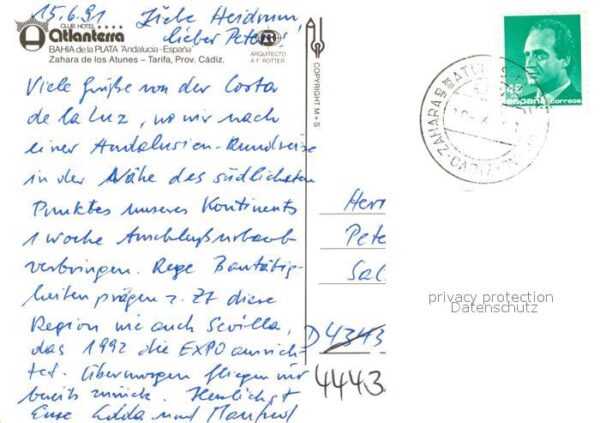 15.6.91 Liebe Heidrun,
lieber Peter!
CLUB HOTEL
Atlanterra
BAHIA de la PLATA "Andalucia - España"
Zahara de los Atunes – Tarifa, Prov. Cádiz.
ARQUITECTO
A.F. ROTTER
COPYRIGHT M + S
Viele Grüße von der Costa
de la Luz, wo wir nach
einer Andalusien-Rundreise
in der Nähe des südlichsten
Punktes unseres Kontinents
1 Woche Anschlußurlaub
verbringen. Rege Bautätig-
keiten prägen z. Zt diese
Region wie auch Sevilla,
das 1992 die EXPO ausrich-
tet. Übermorgen fliegen wir
bereits zurück. Herzlichst
Eure Edda und Manfred
Herr
Pete
Sal
D 4343
4443
45
españa correos
ZAHARA DE LOS ATUNES
CADIZ
privacy protection
Datenschutz